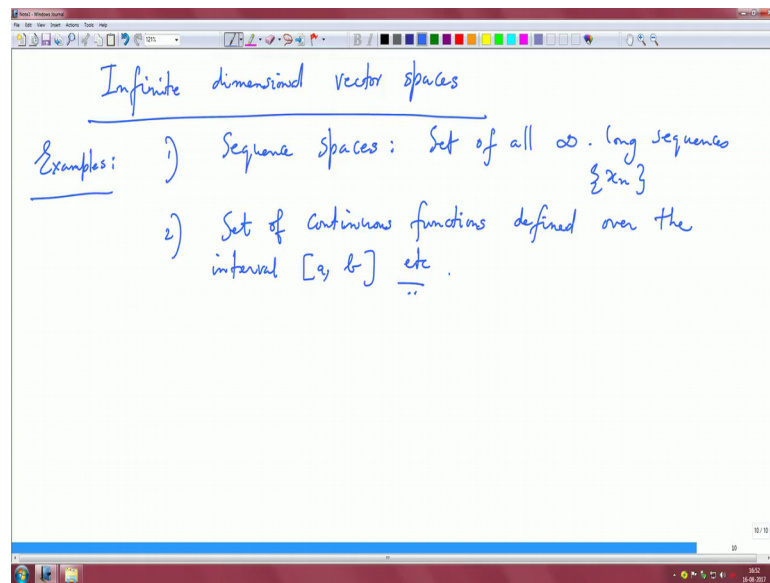 Note1 - Windows Journal
File Edit View Insert Actions Tools Help
121%
B I
Infinite dimensional vector spaces
Examples: 1) Sequence spaces: Set of all ∞. long sequences
{xn}
2) Set of continuous functions defined over the
interval [a, b] etc.
10 / 10
10
16:52
16-08-2017